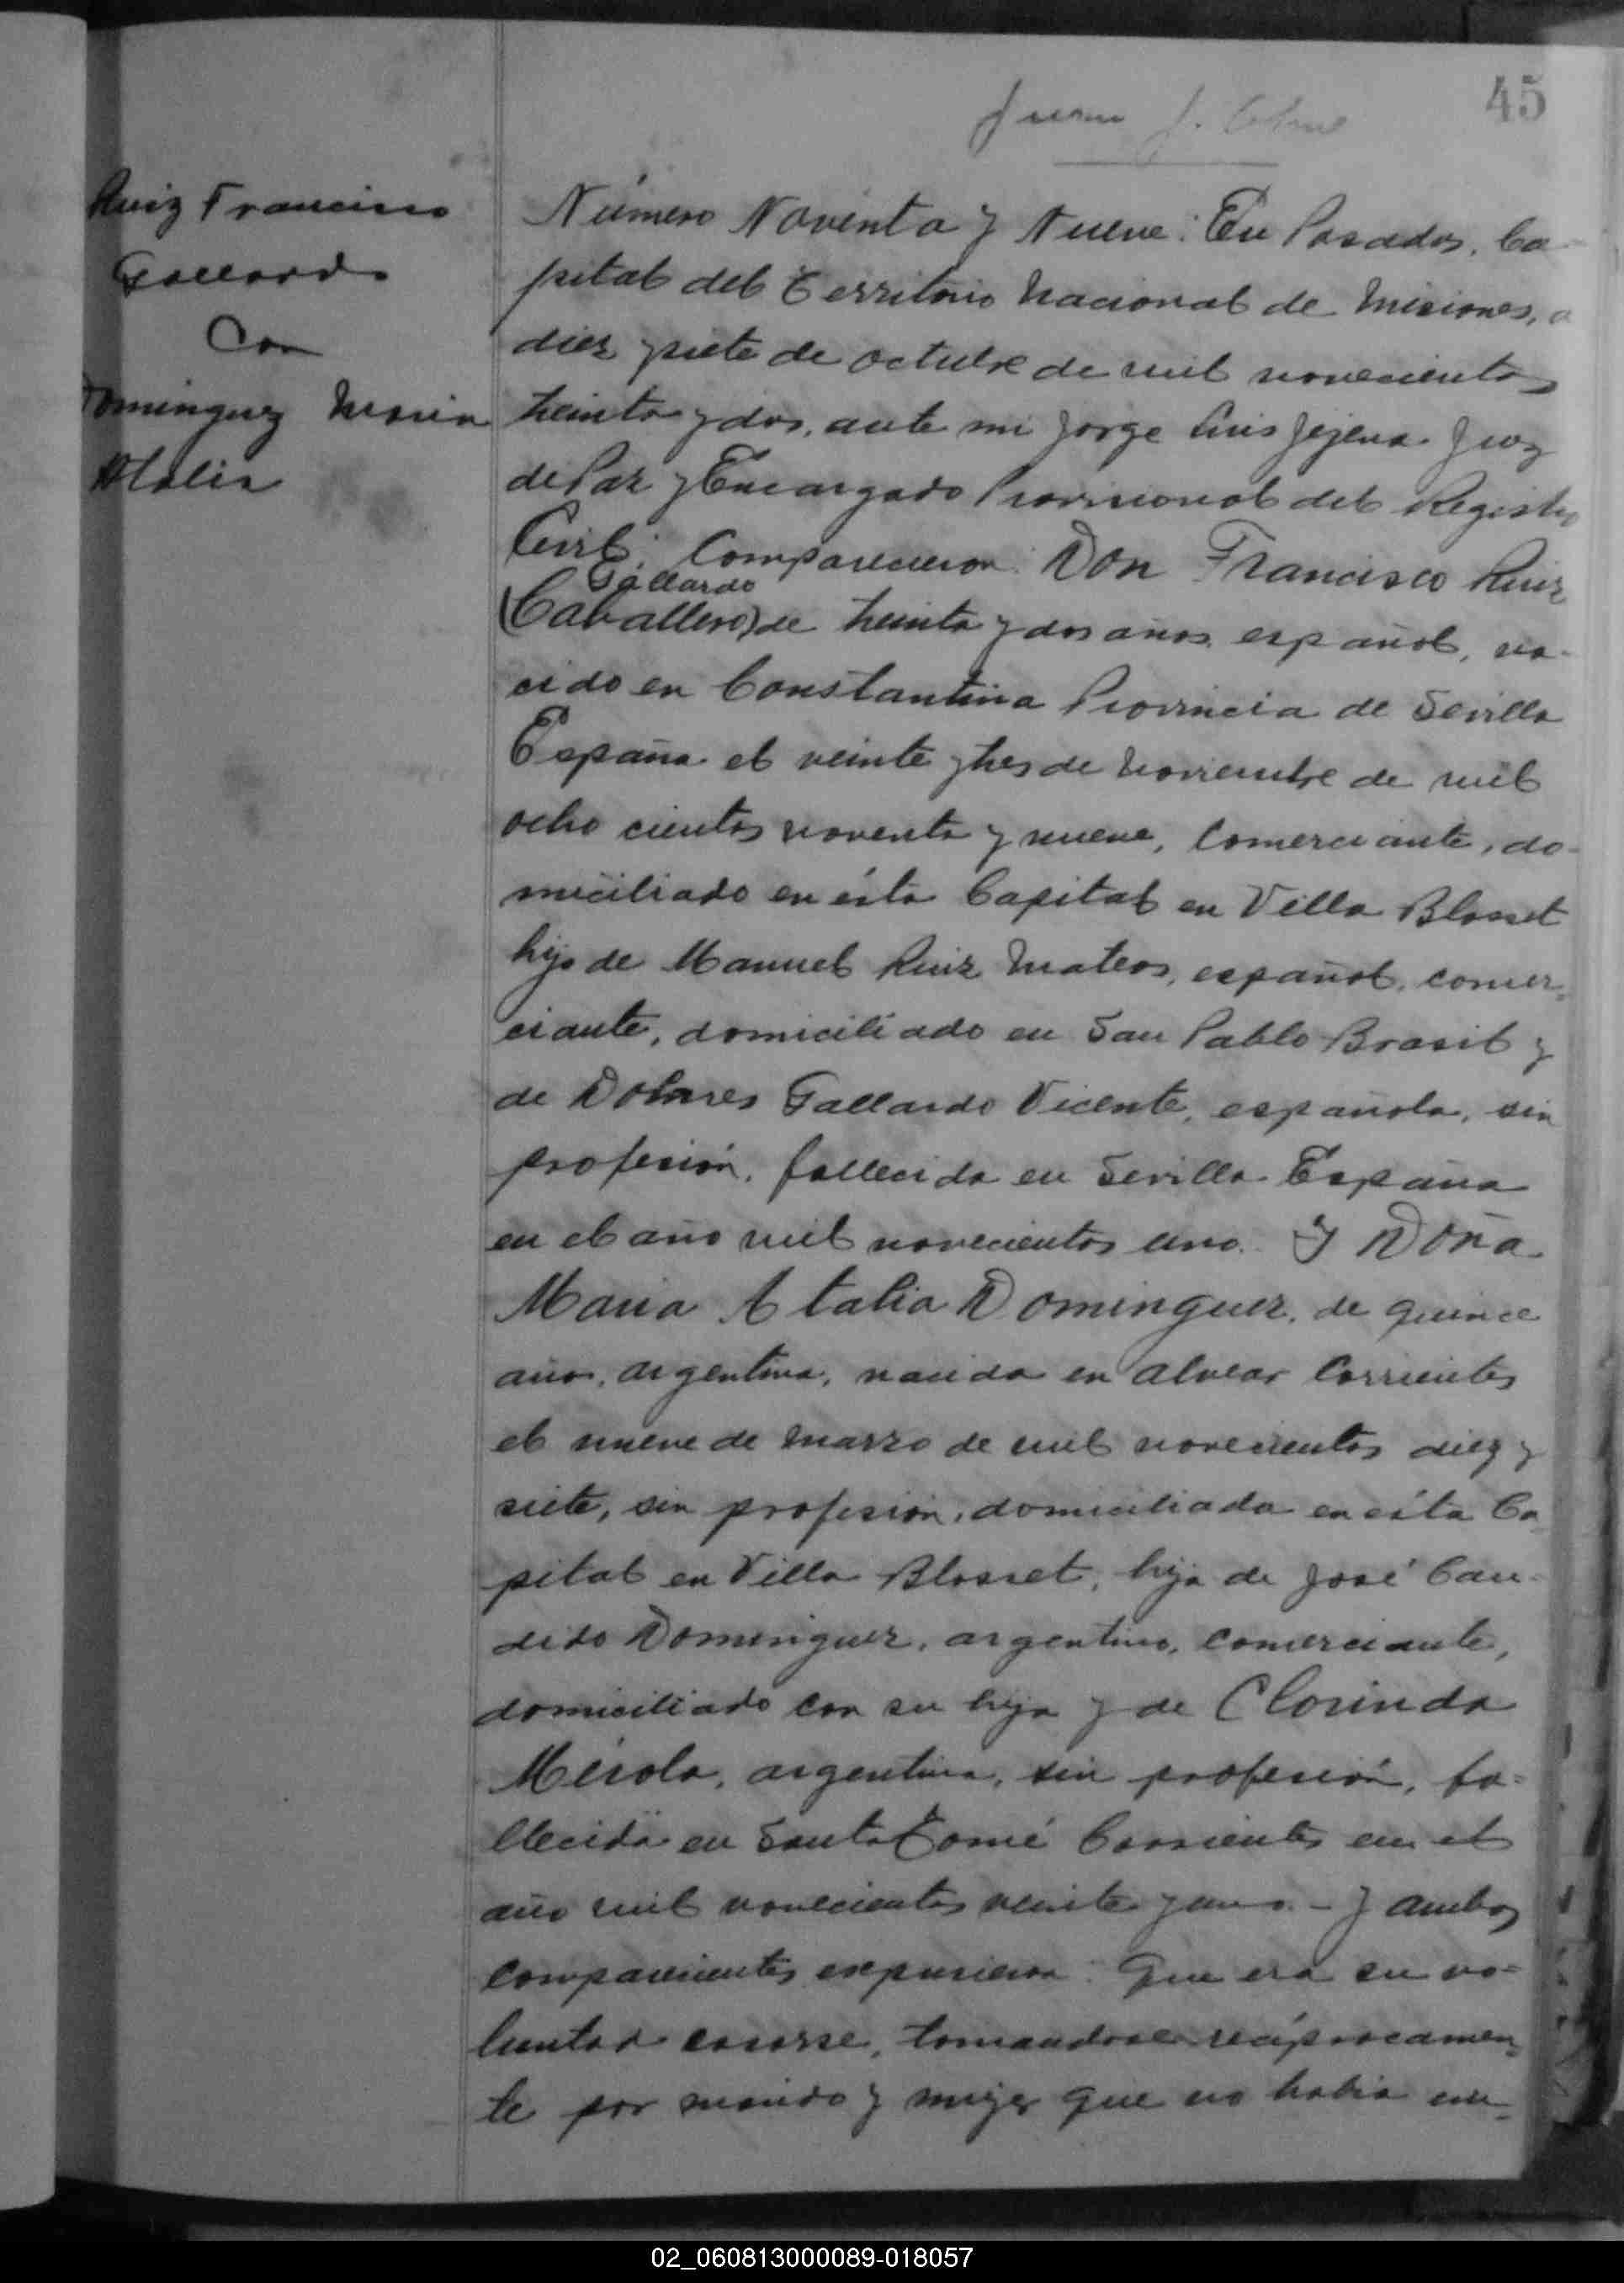 45
Juan J.
Ruiz Francisco
Gallardo
Con
Dominguez Maria
Atalia
Número Noventa y Nueve: En Posadas, Ca-
pital del Territorio Nacional de Misiones, a
diez y siete de octubre de mil novecientos
treinta y dos, ante mi Jorge Luis Jejena Juez
de Paz y Encargado Provisional del Registro
Civil; Comparecieron: Don Francisco Ruiz
Gallardo
(Caballero) de treinta y dos años, español, na-
cido en Constantina Provincia de Sevilla
España el veinte y tres de noviembre de mil
ocho cientos noventa y nueve, Comerciante, do-
miciliado en ésta Capital en Villa Blosset
hijo de Manuel Ruiz Mateos, español, comer-
ciante, domiciliado en San Pablo Brasil y
de Dolores Gallardo Vicente, española, sin
profesión, fallecida en Sevilla España
en el año mil novecientos uno. Y Doña
Maria Atalia Dominguez, de quince
años, argentina, nacida en Alvear Corrientes
el nueve de Marzo de mil novecientos diez y
siete, sin profesión, domiciliada en ésta Ca-
pital en Villa Blosset, hija de José Can-
dido Dominguez, argentino, comerciante,
domiciliado con su hija y de Clorinda
Mérola, argentina, sin profesión, fa-
llecida en Santo Tomé Corrientes en el
año mil novecientos veinte y uno. - Y ambos
comparecientes expusieron: Que era su vo-
luntad casarse, tomandose reciprocamen-
te por marido y mujer que no habia im-
02_060813000089-018057